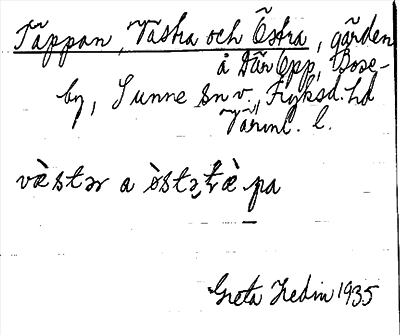 Täppan, Västra och Östra, gården
å Där Opp, Bose-
by, Sunne sn v., Fryksd. hd
Värml. l.
væ̀stər a òstə tæ̀pa
Greta Hedin 1935